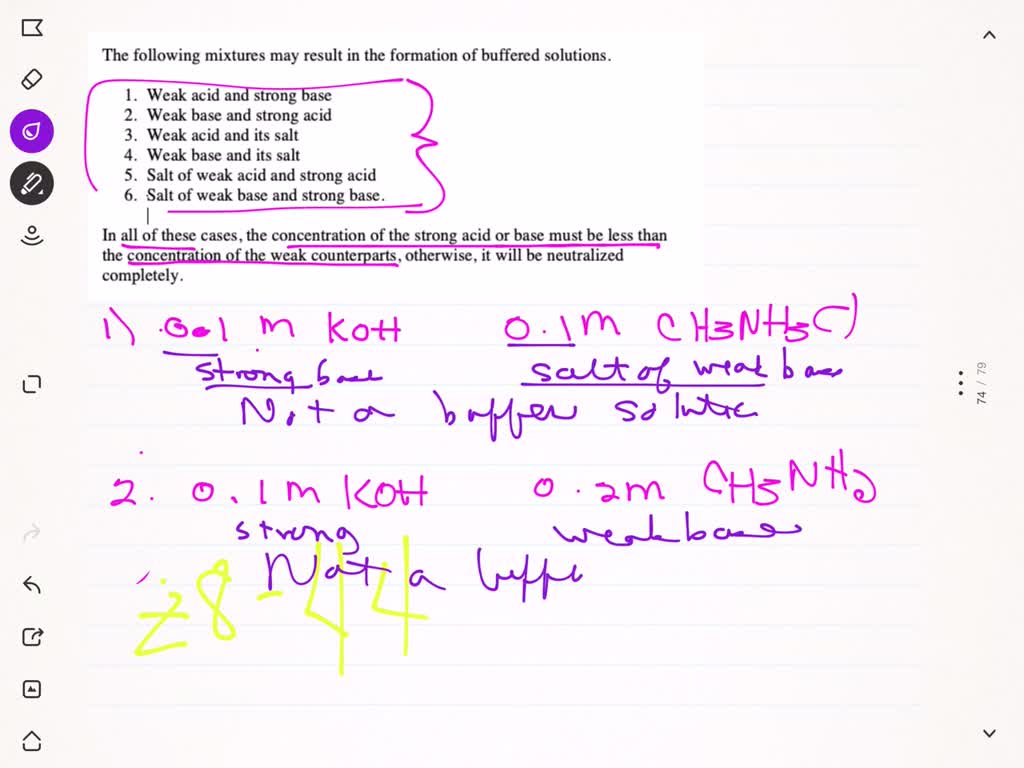 The following mixtures may result in the formation of buffered solutions.
1. Weak acid and strong base
2. Weak base and strong acid
3. Weak acid and its salt
4. Weak base and its salt
5. Salt of weak acid and strong acid
6. Salt of weak base and strong base.
In all of these cases, the concentration of the strong acid or base must be less than
the concentration of the weak counterparts, otherwise, it will be neutralized
completely.
1) 0.1 m KOH 0.1m CH3NH3Cl
strong base salt of weak base
Not a buffer solutic
2. 0.1m KOH 0.2m CH3NH2
strong weak base
Not a buffe
74 / 79